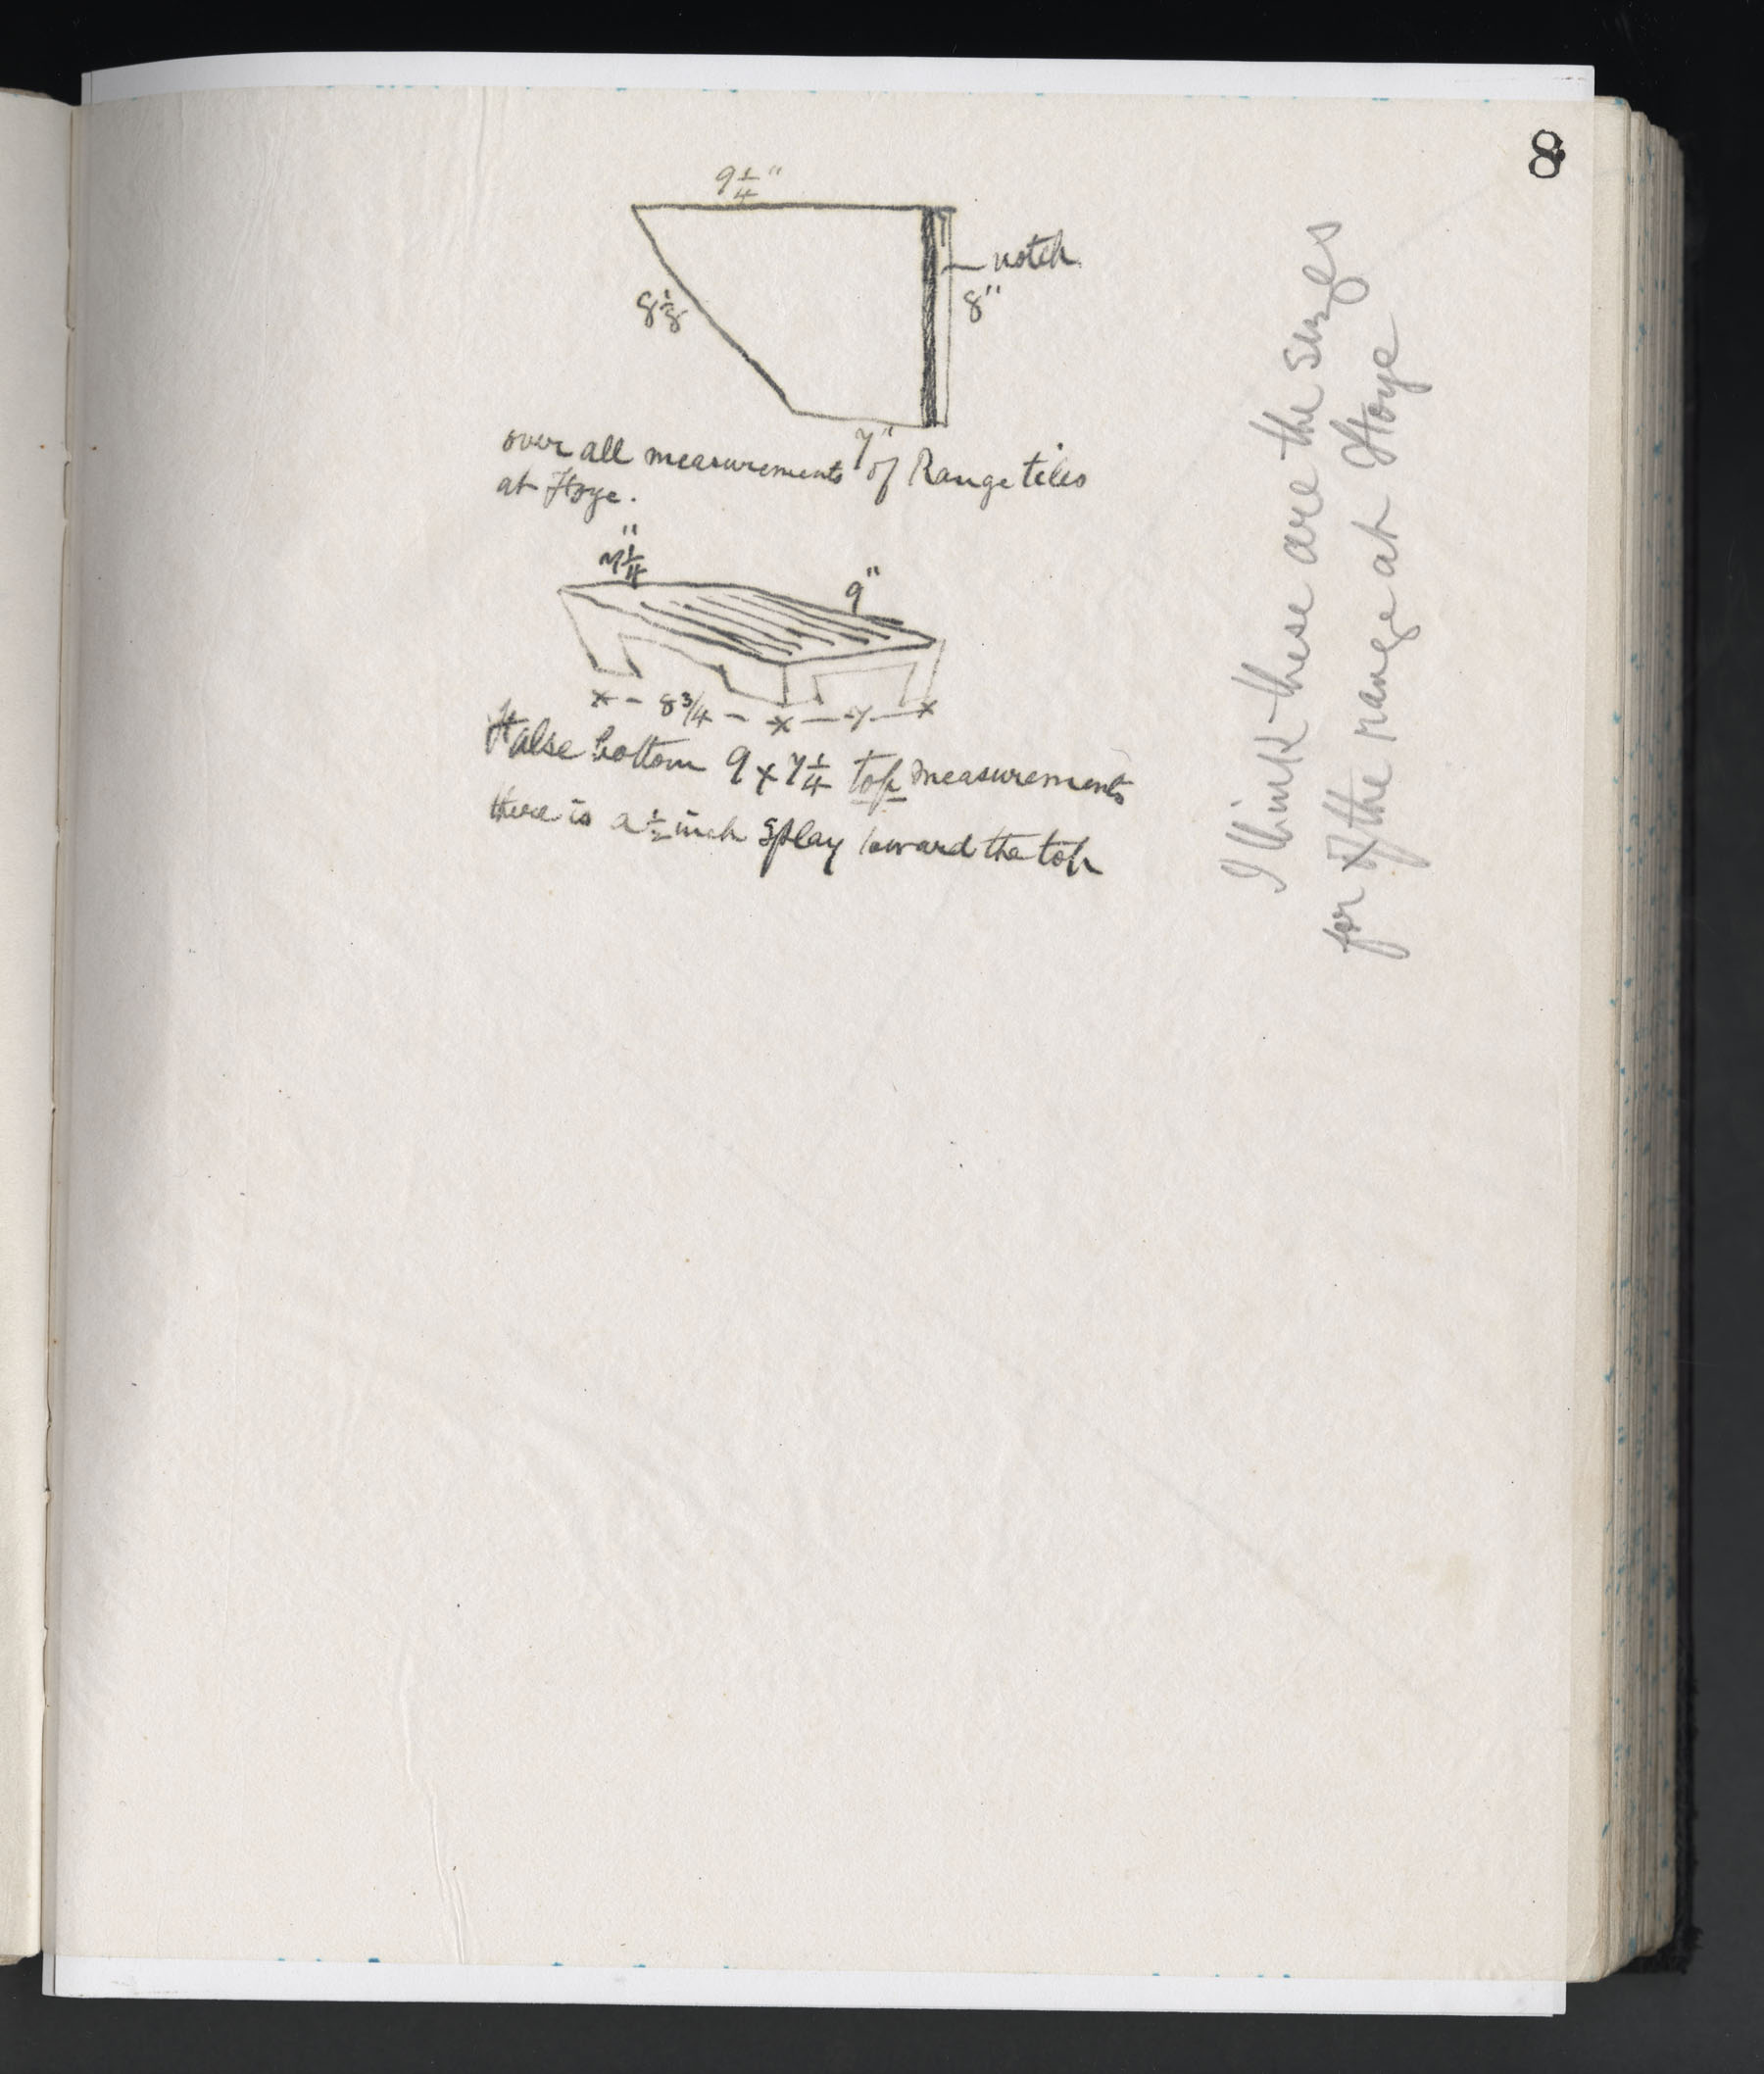 8
9 1/4"
notch
8 1/8
8"
7"
over all measurements of Range tiles
at Hoye.
7 1/4"
9"
x - 8 3/4 - x - 7 - x
False bottom 9 x 7 1/4 top measurements
there is a 1/2 inch splay toward the top
I think these are the sizes
for the range at Hoye